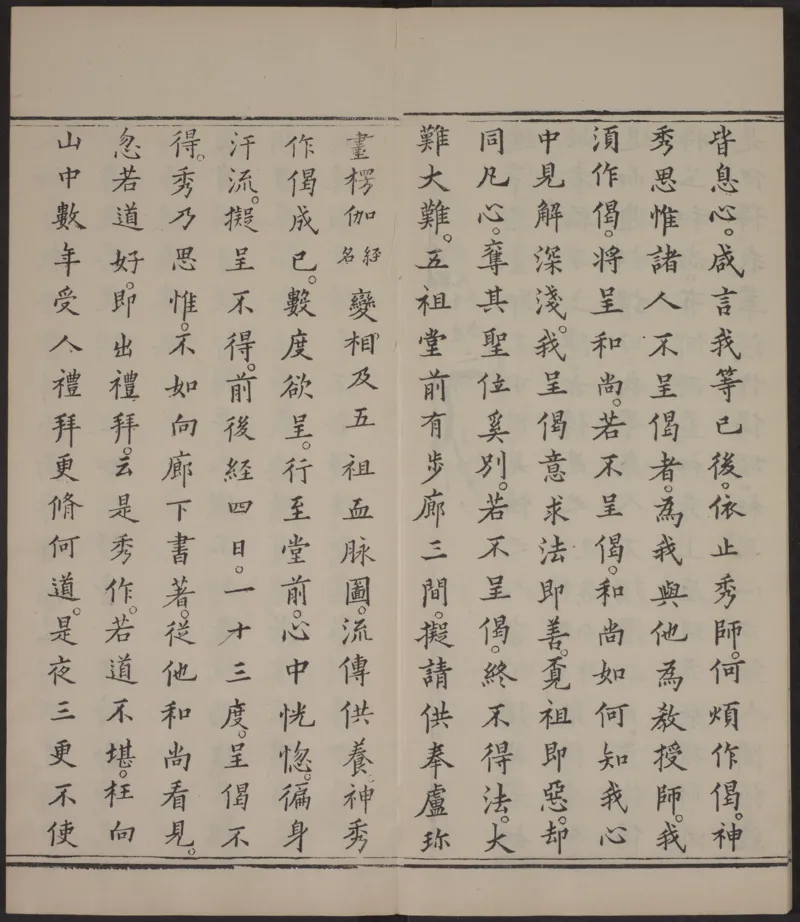 皆息心。咸言我等已後。依止秀師。何煩作偈。神
秀思惟諸人不呈偈者。為我與他為教授師。我
須作偈。將呈和尚。若不呈偈。和尚如何知我心
中見解深淺。我呈偈意求法即善。覔祖即惡。却
同凡心。奪其聖位奚別。若不呈偈。終不得法。大
難大難。五祖堂前有步廊三間。擬請供奉盧珍
畫楞伽經名變相及五祖血脉圖。流傳供養神秀
作偈成已。數度欲呈。行至堂前。心中恍惚。徧身
汗流。擬呈不得。前後經四日。一十三度。呈偈不
得。秀乃思惟。不如向廊下書著。從他和尚看見。
忽若道好。即出禮拜。云是秀作。若道不堪。枉向
山中數年受人禮拜更脩何道。是夜三更不使